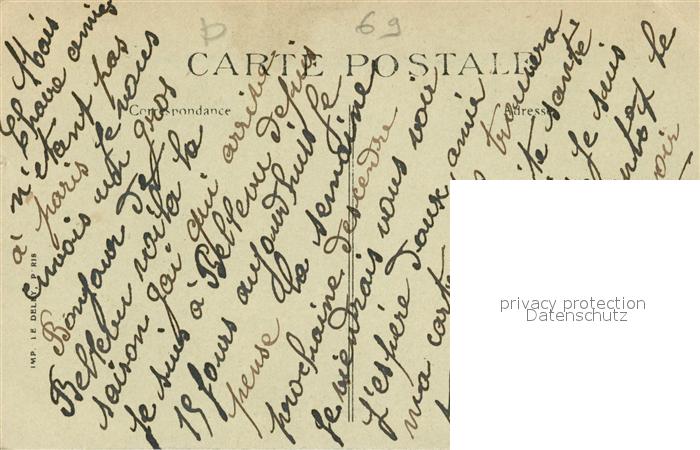 69
CARTE POSTALE
Correspondance
Adresse
IMP. LE DELEY, PARIS
Mais
Chere amie
n'etant pas
à paris je vous
envois un gros
Bonjour de
Bellevu voila la
saison j'ai qui arrive
je suis à Bellevu depuis
15 jours aujourdhuis je
pense la semaine
prochaine descendre
je viendrais vous voir
j'espère doux amie
ma carte trouvera
te santé
je suis
le
voir
privacy protection
Datenschutz